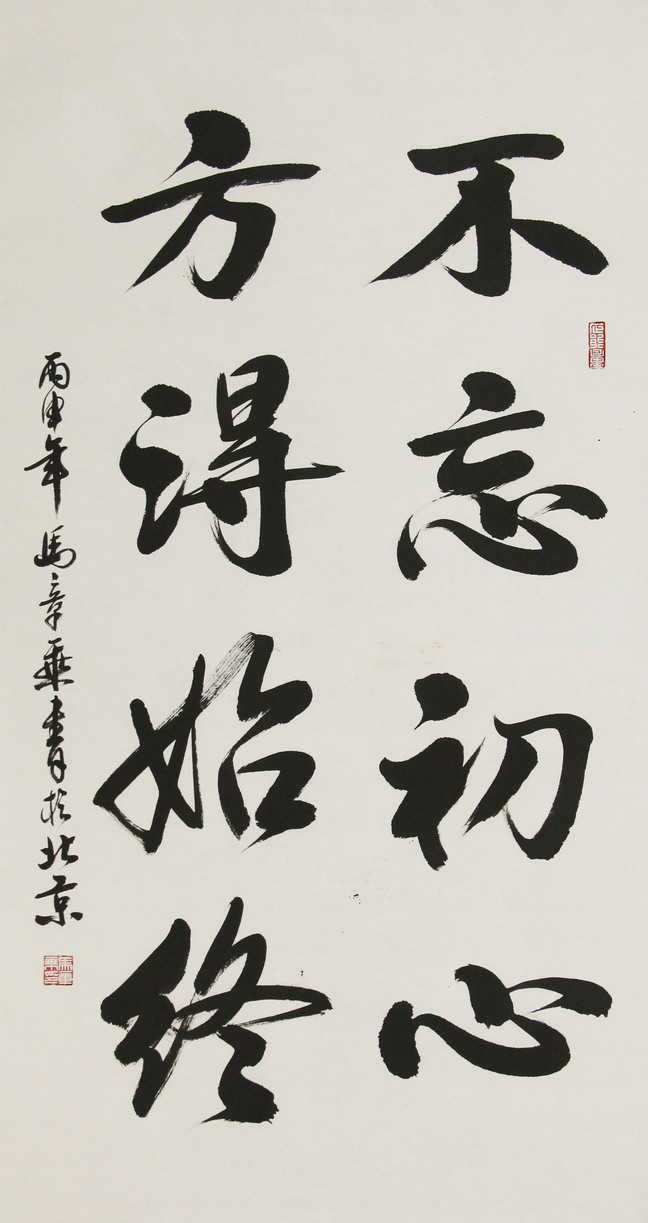 不忘初心
方得始终
丙申年馬章乘書於北京